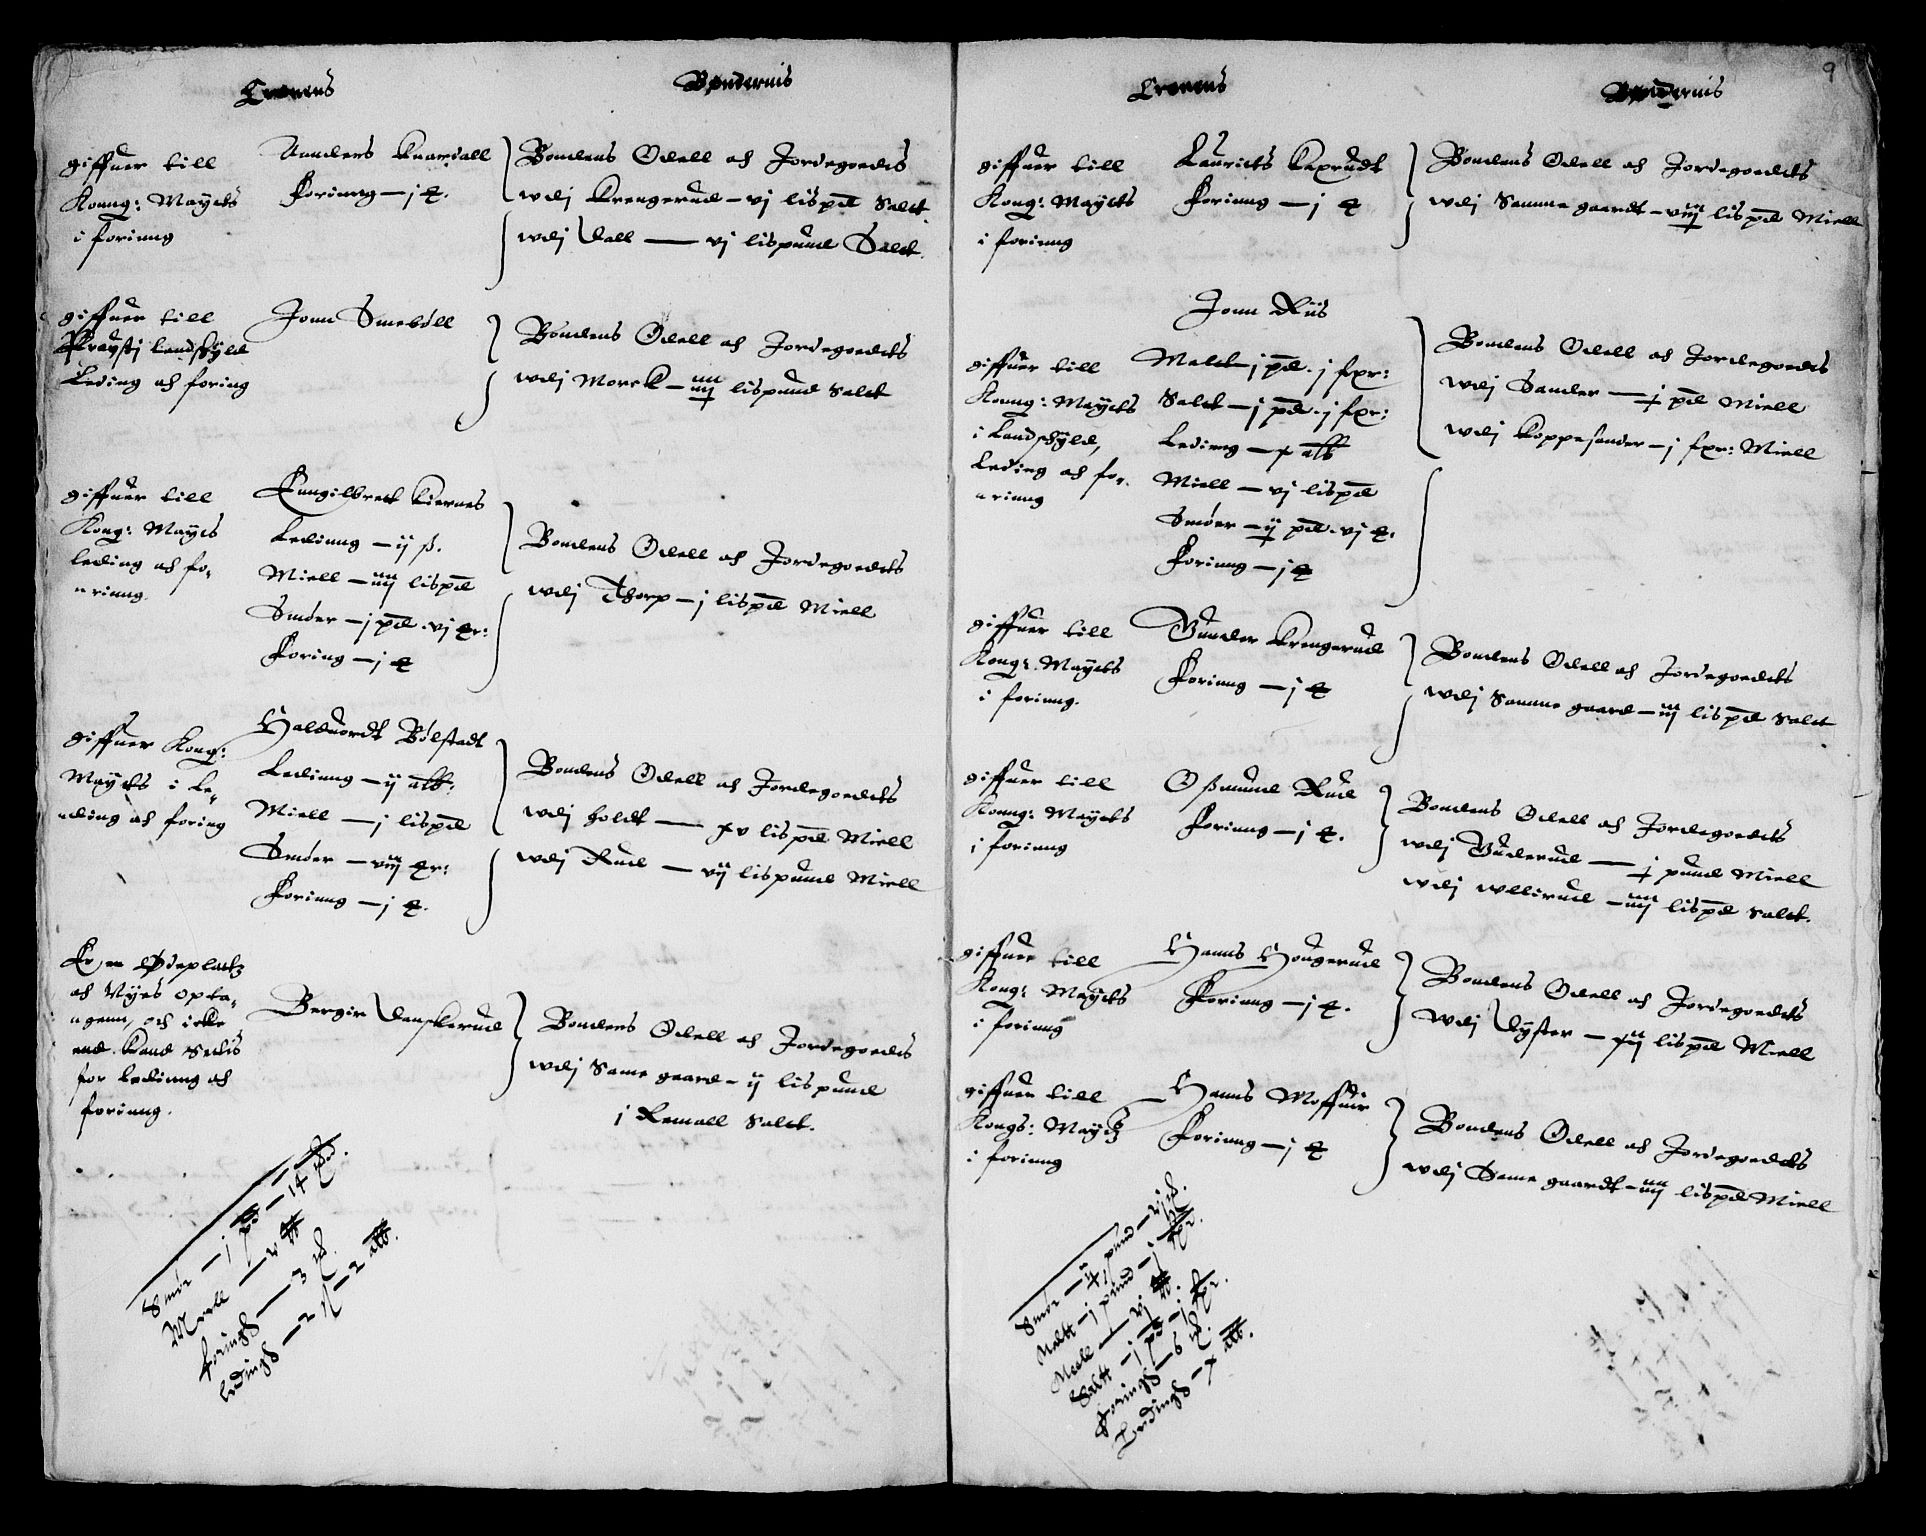 Cronens
Bøndernis
giffuer till
Konng: Mayets
i foriung
Anders Knardall
Foring – j
Bondens Odell och Jordegoedts
wdj Krengerud – vj lispd Salt
wdj Dall — vj lispund Saltt
giffuer till
Prousti Landskyld
Leding och foring
Jonn Smeböll
Bondens Odell och Jordegoedts
wdj Morck – iiij lispund Salt
giffuer till
Kong: Mayts
leding och fo-
ringh
Enngilbret Kiernes
Ledinng – ij ß.
Miell – iiij lispd
Smör – j pd. vj
Foring – j
Bondens Odell och Jordegoedts
wdj Thorp – j lispd Miell
giffuer Kong:
Mayets i Le-
ding och foring
Halduordt Bölstadt
Ledinng – ij alb:
Miell – j lispd
Smör – viij
Foring – j
Bondens Odell och Jordegoedts
wdj Holdt — xv lispd Miell
wdj Rud — vij lispund Miell
Er en Ödeplatz
och Nyes opta-
genn, och icke
end. Kand Settis
for Leding och
foring.
Bergir Danskerud
Bondens Odell och Jordegoedts
wdj Same gaard – ij lispund
j Remall Salt.
Smör – j pd – 14
Meell – v
foringh – 3
ledingh – 2 ß – 2 alb.
9
Cronens
Bøndernis
giffuer till
Kong: Mayets
i foring
Lauritts Kaxrudt
Foring – j
Bondens Odell och Jordegoedts
wdj Samme gaardt – viij lispd Miell
Jonn Riis
giffuer till
Konng: Mayets
i Landschyld,
Leding och fo-
ring
Malt – j pd. j fxr:
Salt – j pd. j fxr:
Leding – x alb
Miell – vj lispd
Smör – ij pd. vj
Foring – j
Bondens Odell och Jordegoedts
wdj Sander — j pd Miell
wdj Koppesander – j fxr: Miell
giffuer till
Kong: Mayets
i foring.
Gunder Krengerud
Foring – j
Bondens Odell och Jordegoedts
wdj Samme gaard – iij lispd Salt
giffuer till
Konng: Mayets
i foring
Oßmund Rud
Foring – j
Bondens Odell och Jordegoedts
wdj Guderud — j pund Miell
wdj wllerud – iiij lispd Salt.
giffuer till
Kong: Mayets
i foring
Hanns Hougerud
Foring – j
Bondens Odell och Jordegoedts
wdj Dyster – xij lispd Miell
giffuer till
Kongs: Maytz
i foring
Hanns Moffuir
Foring – j
Bondens Odell och Jordegoedts
wdj Same gaardt – iiij lispd Miell
Smör – pund
Maltt – j pund – j fxr.
Meell – vj
Saltt – j pd – j fxr.
foringh – 6
Ledingh – x alb.